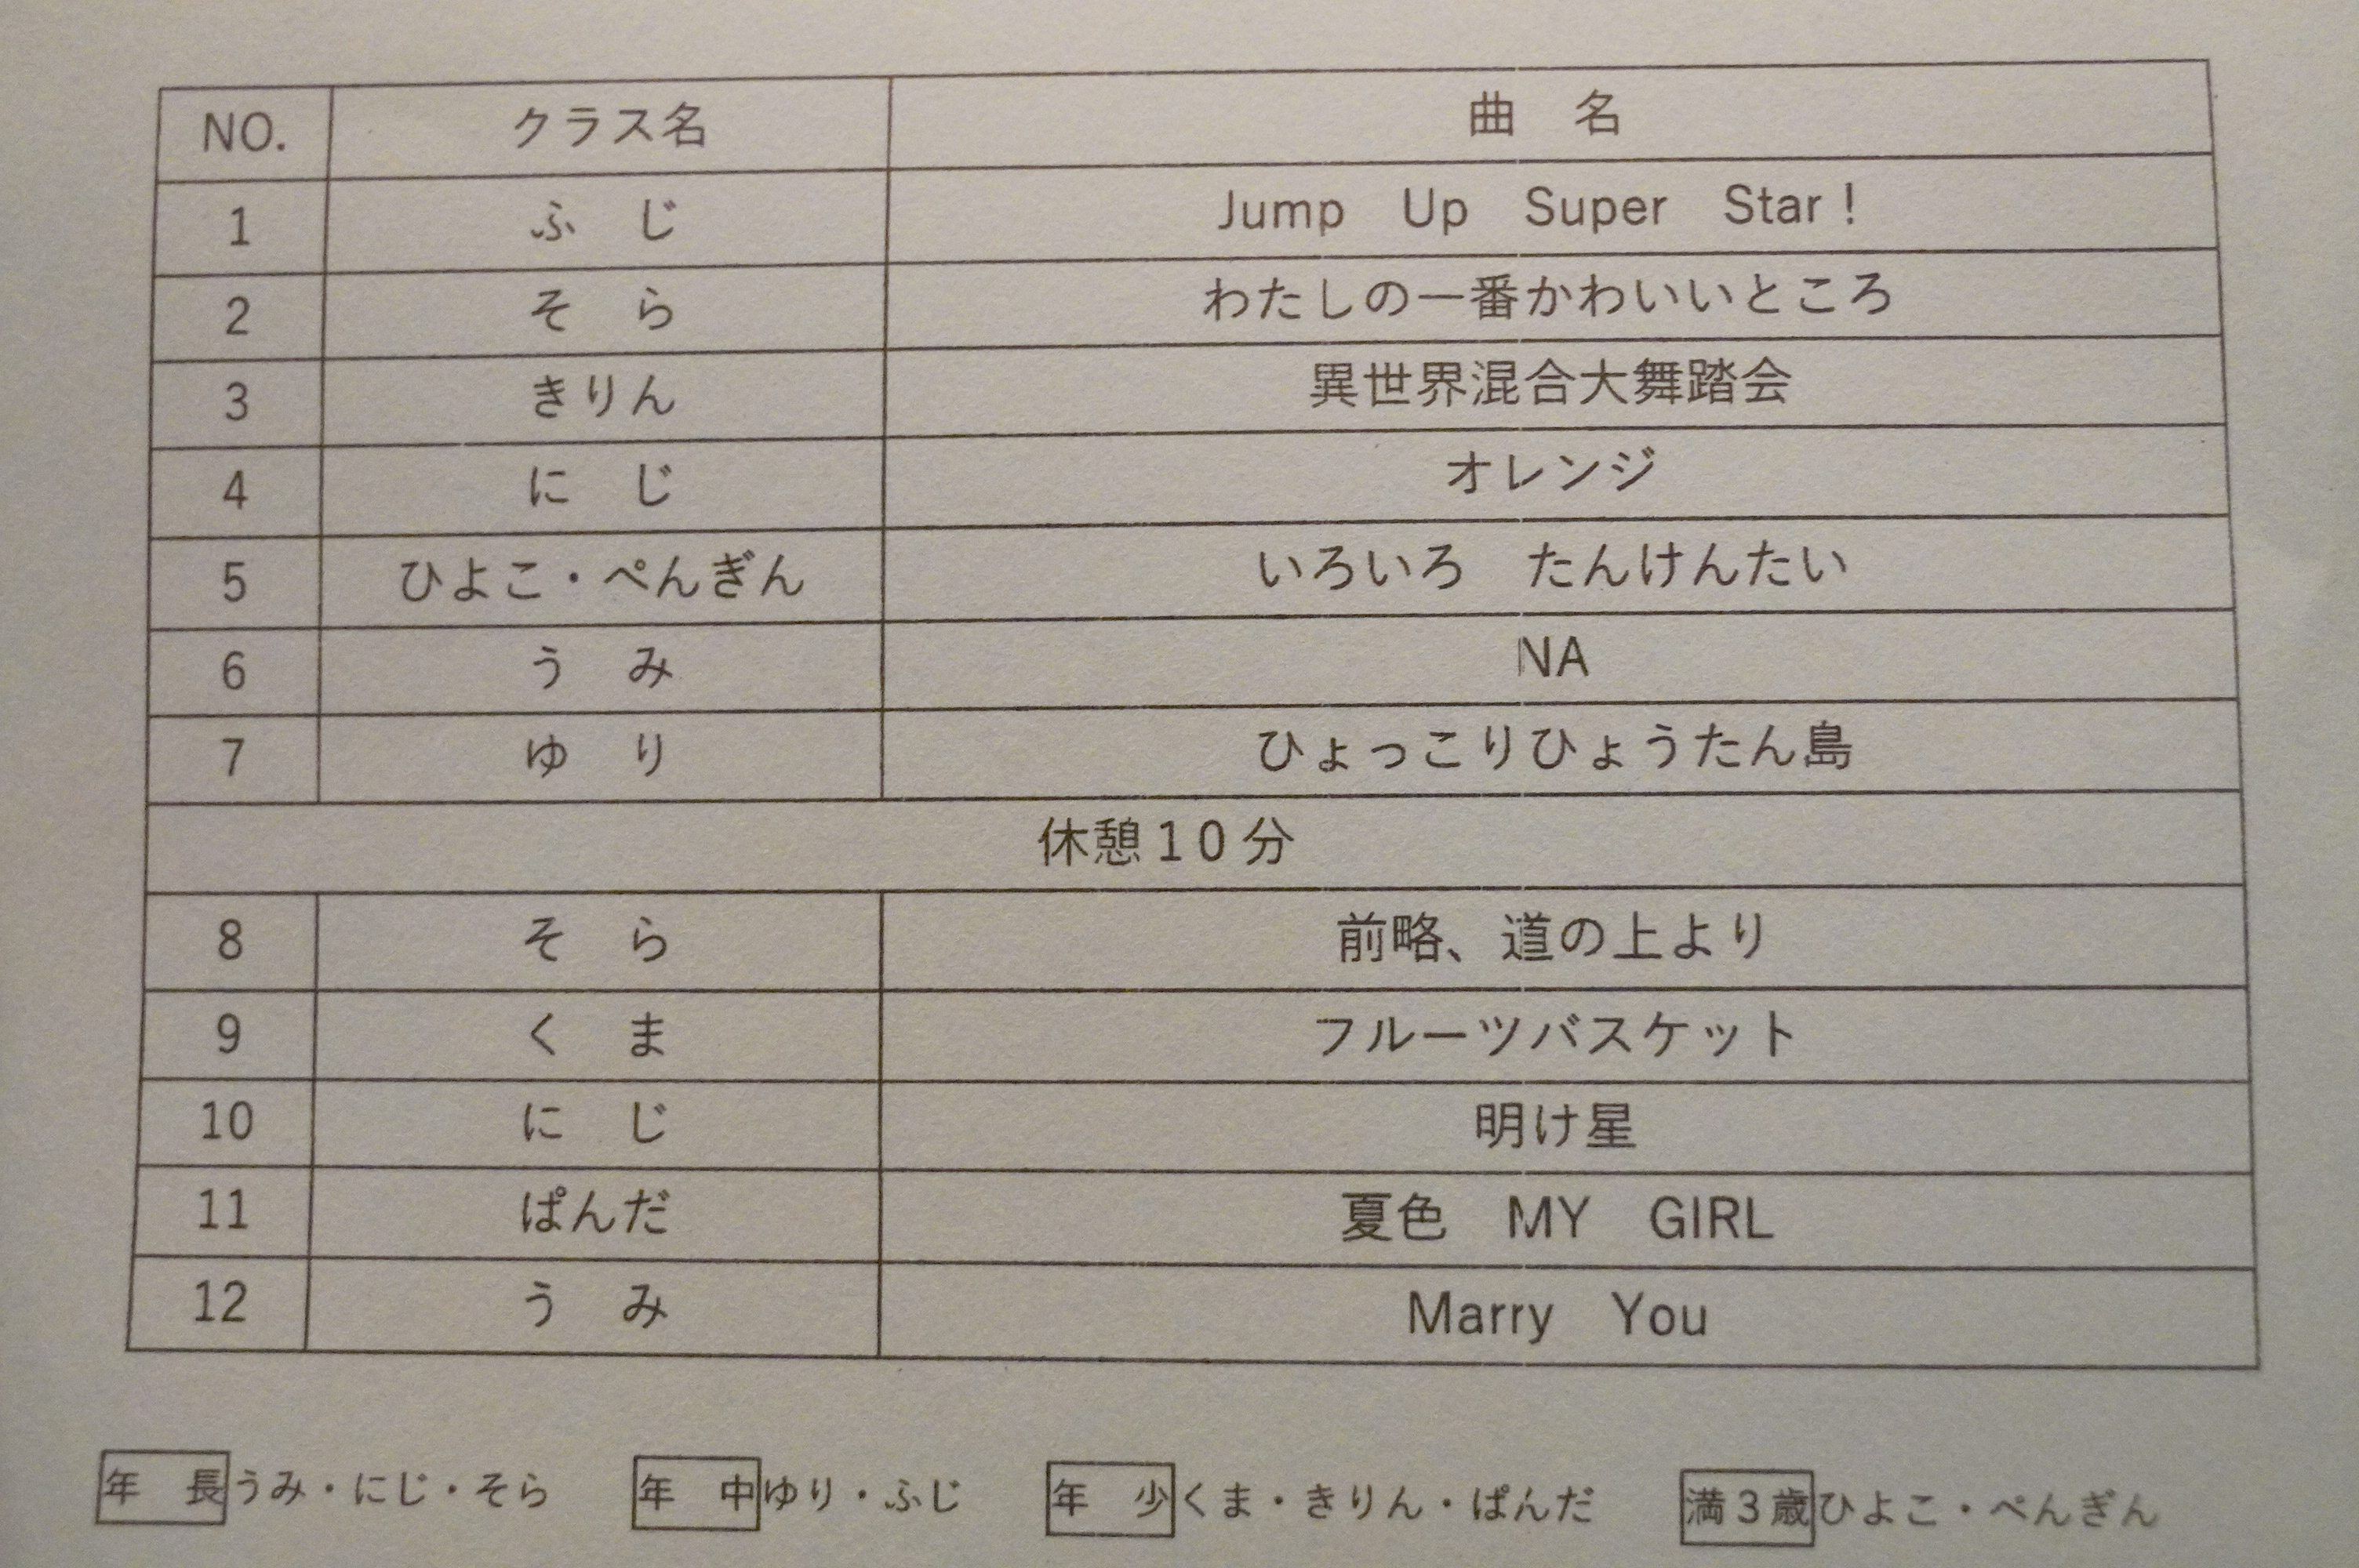 NO. クラス名 曲　名
1 ふ　じ Jump　Up　Super　Star！
2 そ　ら わたしの一番かわいいところ
3 きりん 異世界混合大舞踏会
4 に　じ オレンジ
5 ひよこ・ぺんぎん いろいろ　たんけんたい
6 う　み NA
7 ゆ　り ひょっこりひょうたん島
休憩１０分
8 そ　ら 前略、道の上より
9 く　ま フルーツバスケット
10 に　じ 明け星
11 ぱんだ 夏色　MY　GIRL
12 う　み Marry　You
年　長 うみ・にじ・そら 年　中 ゆり・ふじ 年　少 くま・きりん・ぱんだ 満３歳 ひよこ・ぺんぎん